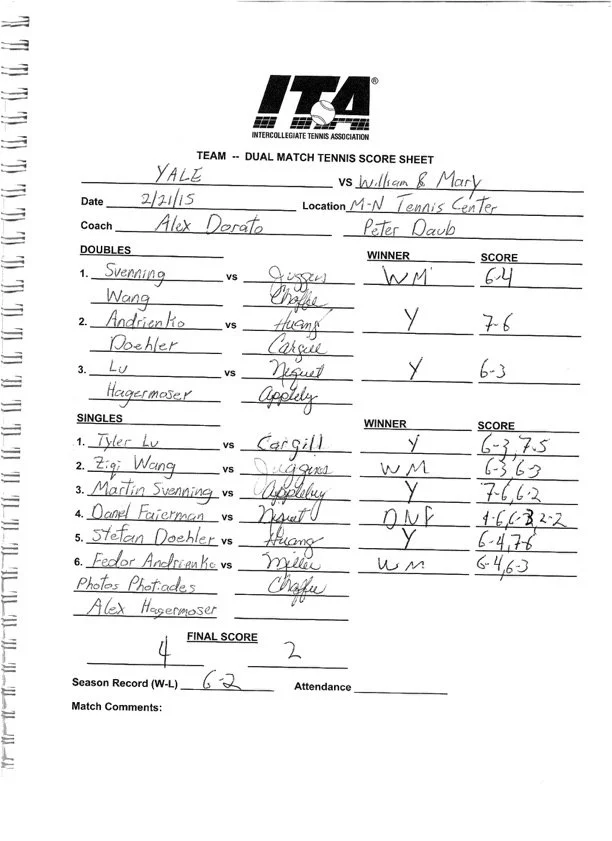 ITA®
INTERCOLLEGIATE TENNIS ASSOCIATION
TEAM -- DUAL MATCH TENNIS SCORE SHEET
YALE vs William & Mary
Date 2/21/15 Location M-N Tennis Center
Coach Alex Dorato Peter Daub
DOUBLES WINNER SCORE
1. Svenning vs Juggins WM 6-4
Wang Chaffee
2. Andrienko vs Huang Y 7-6
Doehler Cargill
3. Lu vs Niquet Y 6-3
Hagermoser
SINGLES WINNER SCORE
1. Tyler Lu vs Cargill Y 6-3, 7-5
2. Ziqi Wang vs Juggins WM 6-3 6-3
3. Martin Svenning vs Applebuy Y 7-6, 6-2
4. Danel Faierman vs Niquet DNF 4-6, 6-3, 2-2
5. Stefan Doehler vs Huang Y 6-4, 7-6
6. Fedor Andrienko vs Miller WM 6-4, 6-3
Photos Photiades Chaffee
Alex Hagermoser
FINAL SCORE
4 2
Season Record (W-L) 6-2 Attendance
Match Comments: